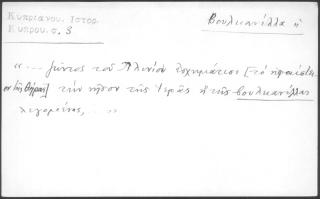 Κυπριανου. Ιστορ.
Κυπρου. σ. 3
Βουλκανέλλα ἡ
"... ζῶντος τοῦ Πλινίου ἐσχημάτισε [τὸ ἡφαίστει-
ον τῆς Θήρας] τὴν νῆσον τῆς Ἱερᾶς ἢ τῆς βουλκανέλλας
λεγομένης, ..."